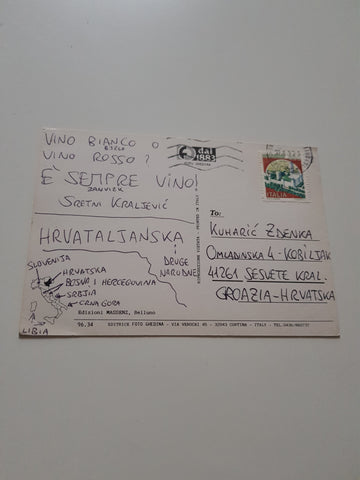 VINO BIANCO O
BIJELO
VINO ROSSO?
È SEMPRE VINO!
ZAUVIJEK
SRETNI KRALJEVIĆ
HRVATALJANSKA
I DRUGE
NARODNE
SLOVENIJA
HRVATSKA
BOSNA I HERCEGOVINA
SRBIJA
CRNA GORA
LIBIA
Edizioni MASSENZ, Belluno
96.34
EDITRICE FOTO GHEDINA - VIA VEROCAI 45 - 32043 CORTINA - ITALY - TEL. 0436/860737
dal
1883
FOTO GHEDINA
ITALIA
To:
KUHARIĆ ZDENKA
OMLADINSKA 4 - KOBILJAK
41261 SESVETE KRAL.
CROAZIA-HRVATSKA